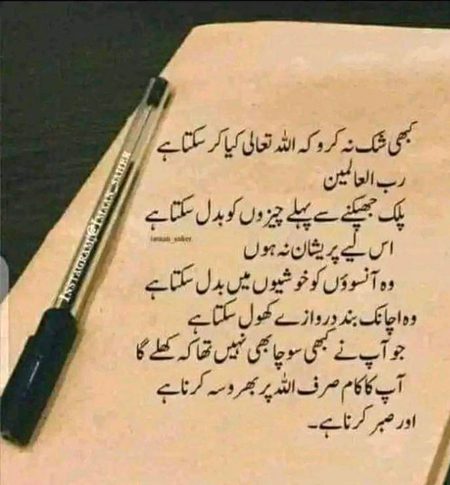 کبھی شک نہ کرو کہ اللہ تعالی کیا کر سکتا ہے
رب العالمین
پلک جھپکنے سے پہلے چیزوں کو بدل سکتا ہے
اس لیے پریشان نہ ہوں
وہ آنسوؤں کو خوشیوں میں بدل سکتا ہے
وہ اچانک بند دروازے کھول سکتا ہے
جو آپ نے کبھی سوچا بھی نہیں تھا کہ کھلے گا
آپ کا کام صرف اللہ پر بھروسہ کرنا ہے
اور صبر کرنا ہے۔
INSTAGRAM@IMAAN_SAHER